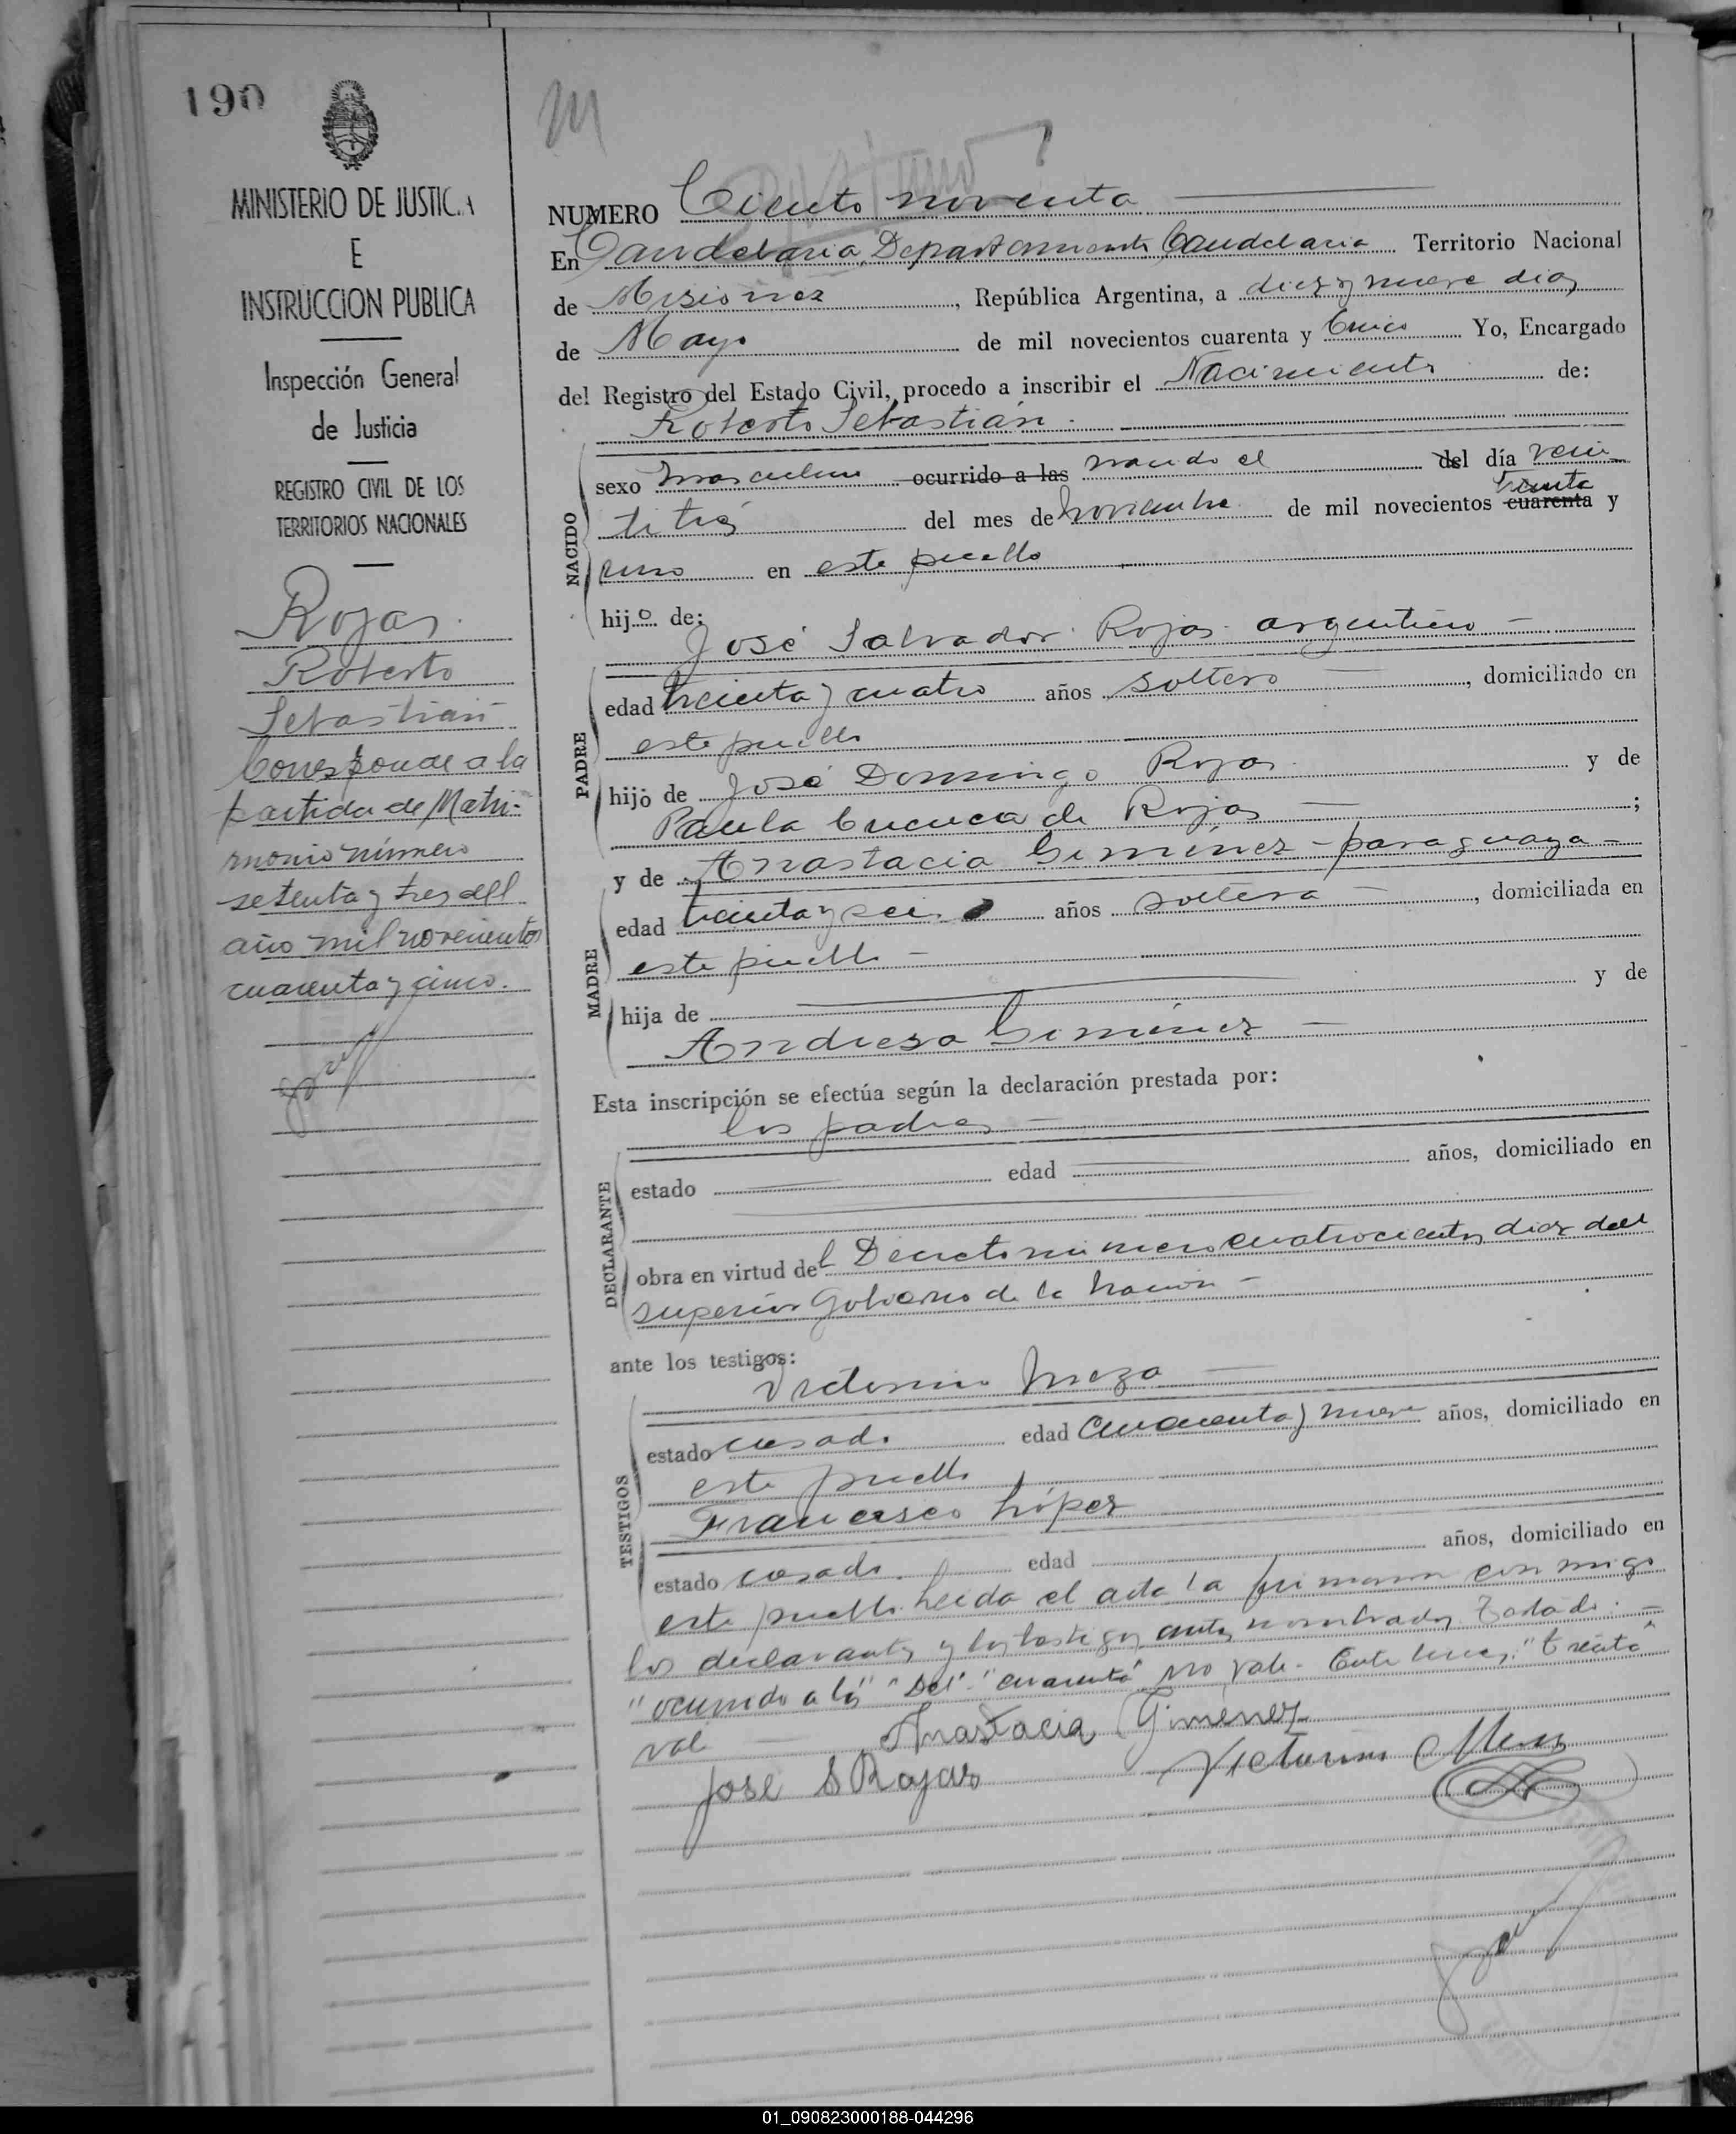 190
MINISTERIO DE JUSTICIA
E
INSTRUCCION PUBLICA
Inspección General
de Justicia
REGISTRO CIVIL DE LOS
TERRITORIOS NACIONALES
Rojas
Roberto
Sebastián
Corresponde a la
partida de Matri-
monio número
setenta y tres del
año mil novecientos
cuarenta y cinco.
NUMERO Ciento noventa
En Candelaria, Departamento Candelaria Territorio Nacional
de Misiones, República Argentina, a diez y nueve dias
de Mayo de mil novecientos cuarenta y Cinco Yo, Encargado
del Registro del Estado Civil, procedo a inscribir el Nacimiento de:
Roberto Sebastián.
NACIDO
sexo masculino ocurrido a las nacido el del día vein
titres del mes de noviembre de mil novecientos cuarenta treinta y
uno en este pueblo
hijo de:
José Salvador Rojas argentino
PADRE
edad treinta y cuatro años soltero, domiciliado en
este pueblo
hijo de José Domingo Rojas y de
Paula Cuenca de Rojas;
y de Anastacia Giménez - paraguaya -
MADRE
edad treinta y seis años soltera, domiciliada en
este pueblo -
hija de y de
Andresa Giménez -
Esta inscripción se efectúa según la declaración prestada por:
los padres
DECLARANTE
estado edad años, domiciliado en
obra en virtud del Decreto número cuatrocientos diez del
superior Gobierno de la Nación -
ante los testigos:
Victorino Meza
TESTIGOS
estado casado edad Cuarenta y nueve años, domiciliado en
este pueblo
Francisco López
estado casado. edad años, domiciliado en
este pueblo. Leida el acta la firmaron conmigo
los declarantes y los testigos antes nombrados. Testado: -
"ocurrido a las" "Del" "cuarenta" No vale - Entre lineas: "treinta"
vale
Anastacia Giménez
José S Rojas
Victorino Meza
01_090823000188-044296